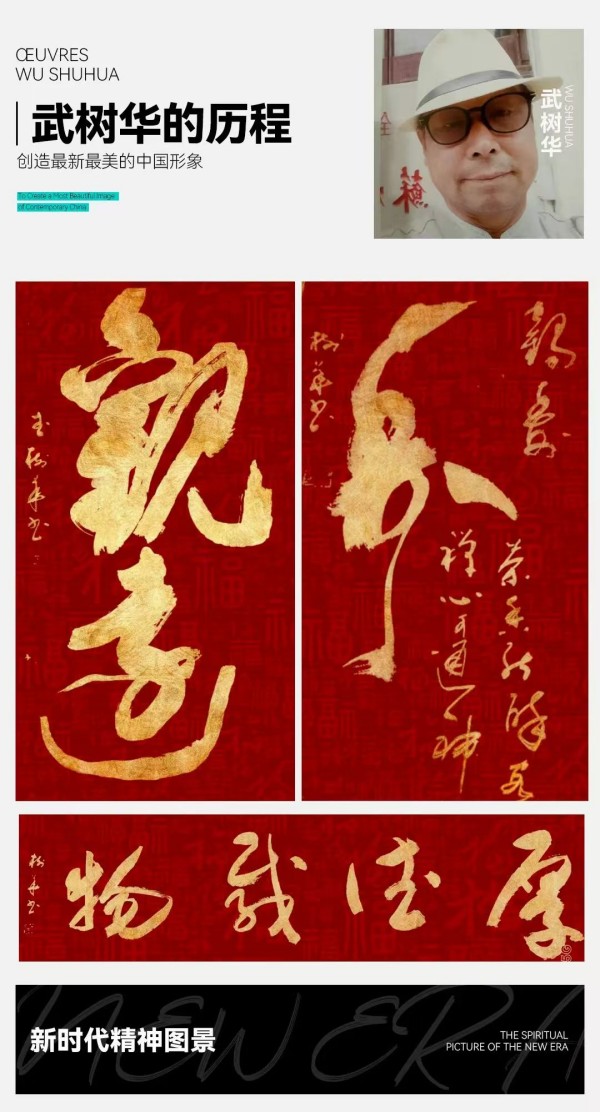 ŒUVRES
WU SHUHUA
武树华的历程
创造最新最美的中国形象
To Create a Most Beautiful Image
of Contemporary China
武树华
WU SHUHUA
蘇
觀遠
武树华书
禅心可通神
树华书
厚德载物
树华书
新时代精神图景
NEW ER
THE SPIRITUAL
PICTURE OF THE NEW ERA